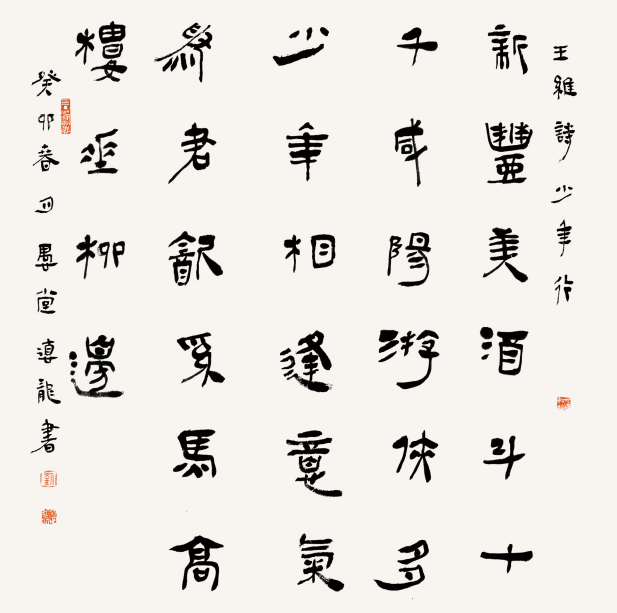 王維詩少年行
新豐美酒斗十
千咸陽游俠多
少年相逢意氣
為君飲系馬高
樓垂柳邊
癸卯春月堂龍書